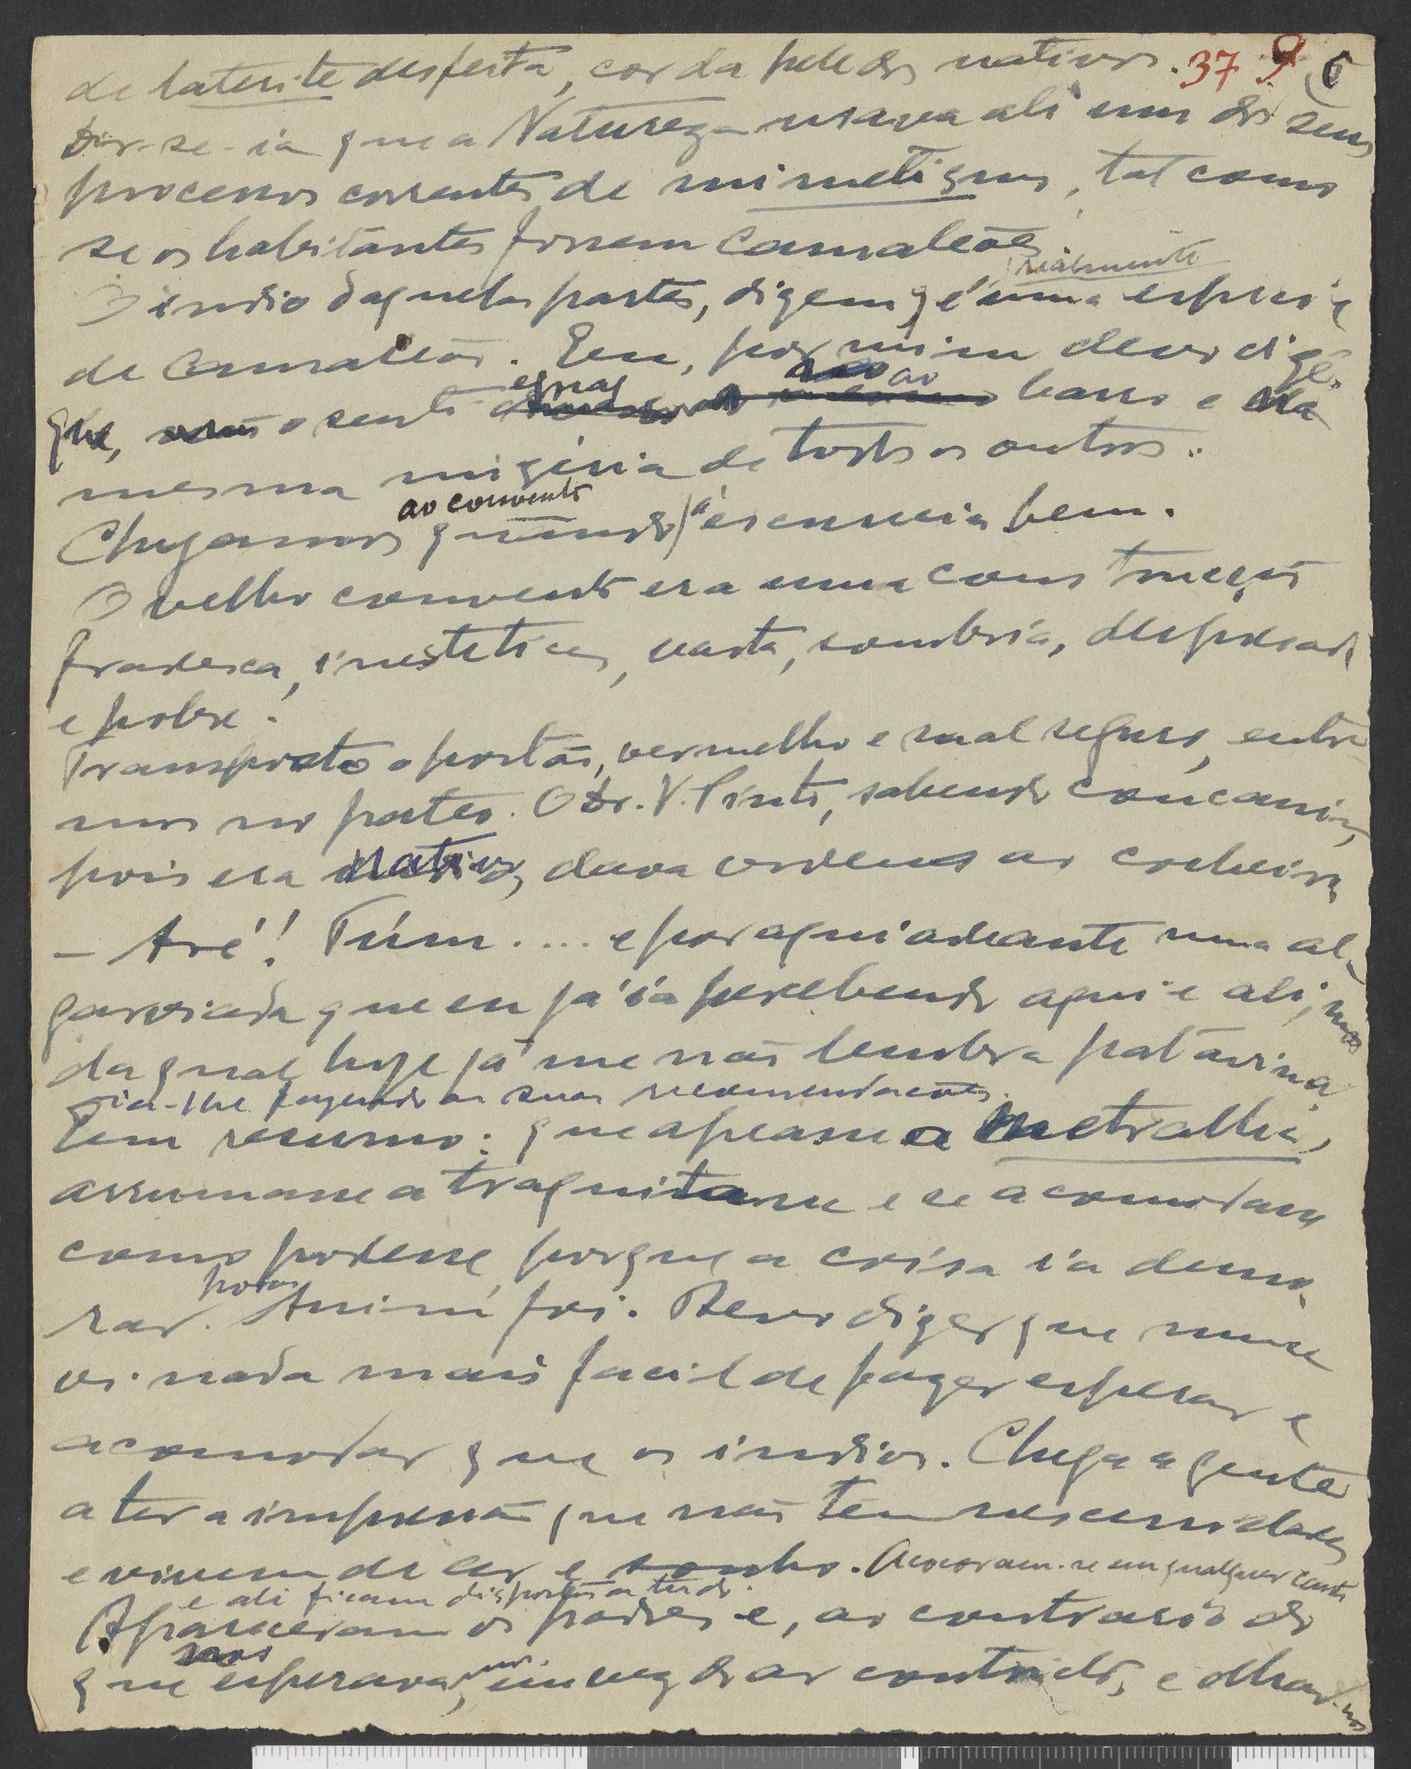 de laterite desfeita, cor da pele dos nativos. 37 9 6
Dir-se-ia que a Natureza usava ali um dos seus
processos correntes de mimetismo, tal como
se os habitantes fossem camaleões.
realmente
O indio daquelas partes, dizem, é uma espécie
de camaleão. Eu, por mim devo dizer
que, o senti egual ao barro e na
mesma miséria de todos os outros.
ao convento
Chegamos quando já escurecia bem.
O velho convento era uma construção
fradesca, inestetica, vasta, sombria, desprezada
e pobre.
Transposto o portão, vermelho e mal seguro, entra-
mos no pateo. O Dr. V. Pinto, sabendo concanim,
pois era nativo, dava ordens ao cocheiro
- Aré! Túm .... e por aqui adeante uma al-
garviada que eu já ia percebendo aqui e ali, mas
da qual hoje já me não lembra patavina.
ia-lhe fazendo as suas recomendacoes.
Em resumo: que apeasse a metralha,
arrumasse a traquitana e se acomodasse
como podesse, porque a coisa ia demo-
rar. Assim foi. Devo dizer que nunca
vi nada mais facil de fazer esperar e
acomodar que os indios. Chega a gente
a ter a impressão que não tem necessidades
e vivem de ar e sonho. Acocoram-se em qualquer canto
e ali ficam dispostos a tudo.
Apareceram os padres e, ao contrario do
que nos esperava, em vez do ar contraido, e olhar-nos